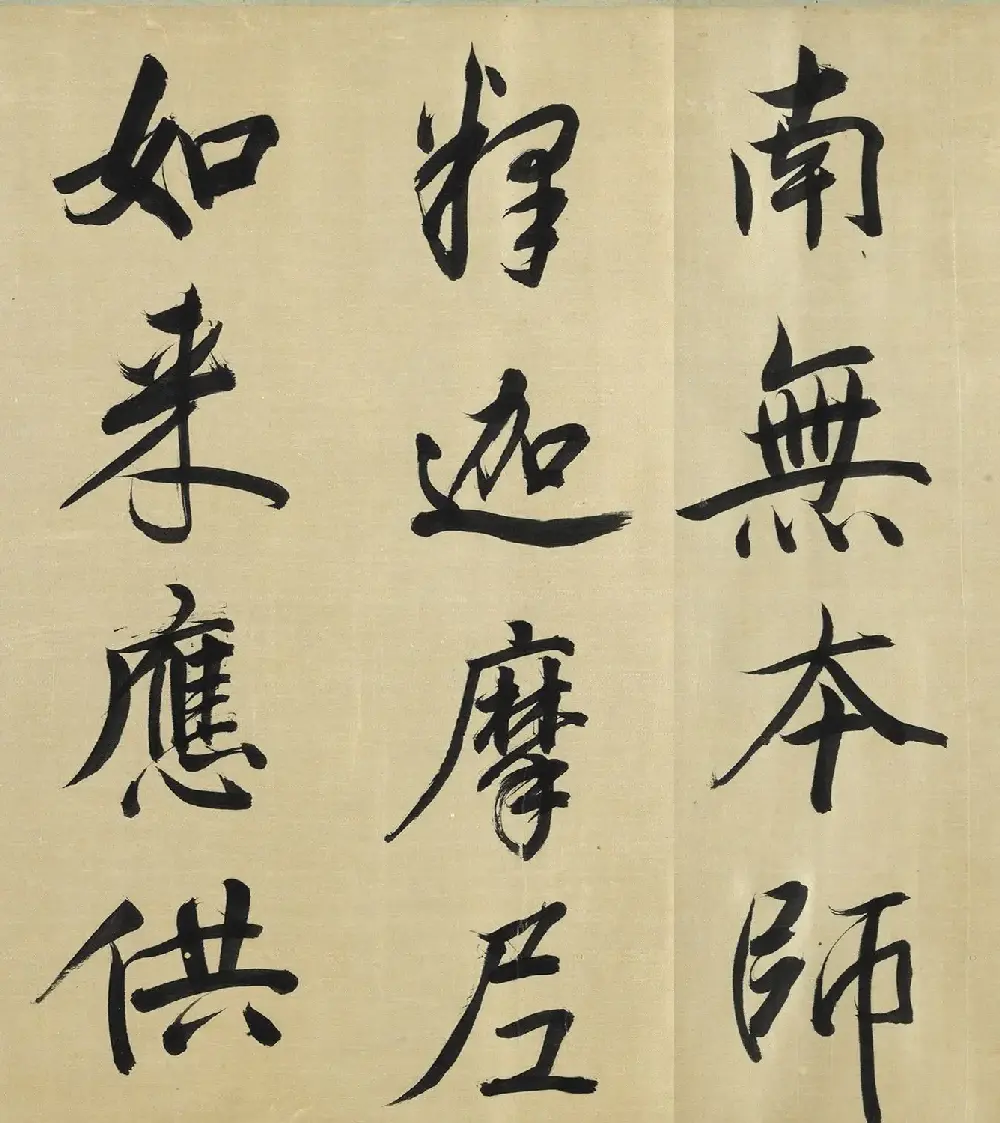 南無本師
釋迦摩尼
如来應供